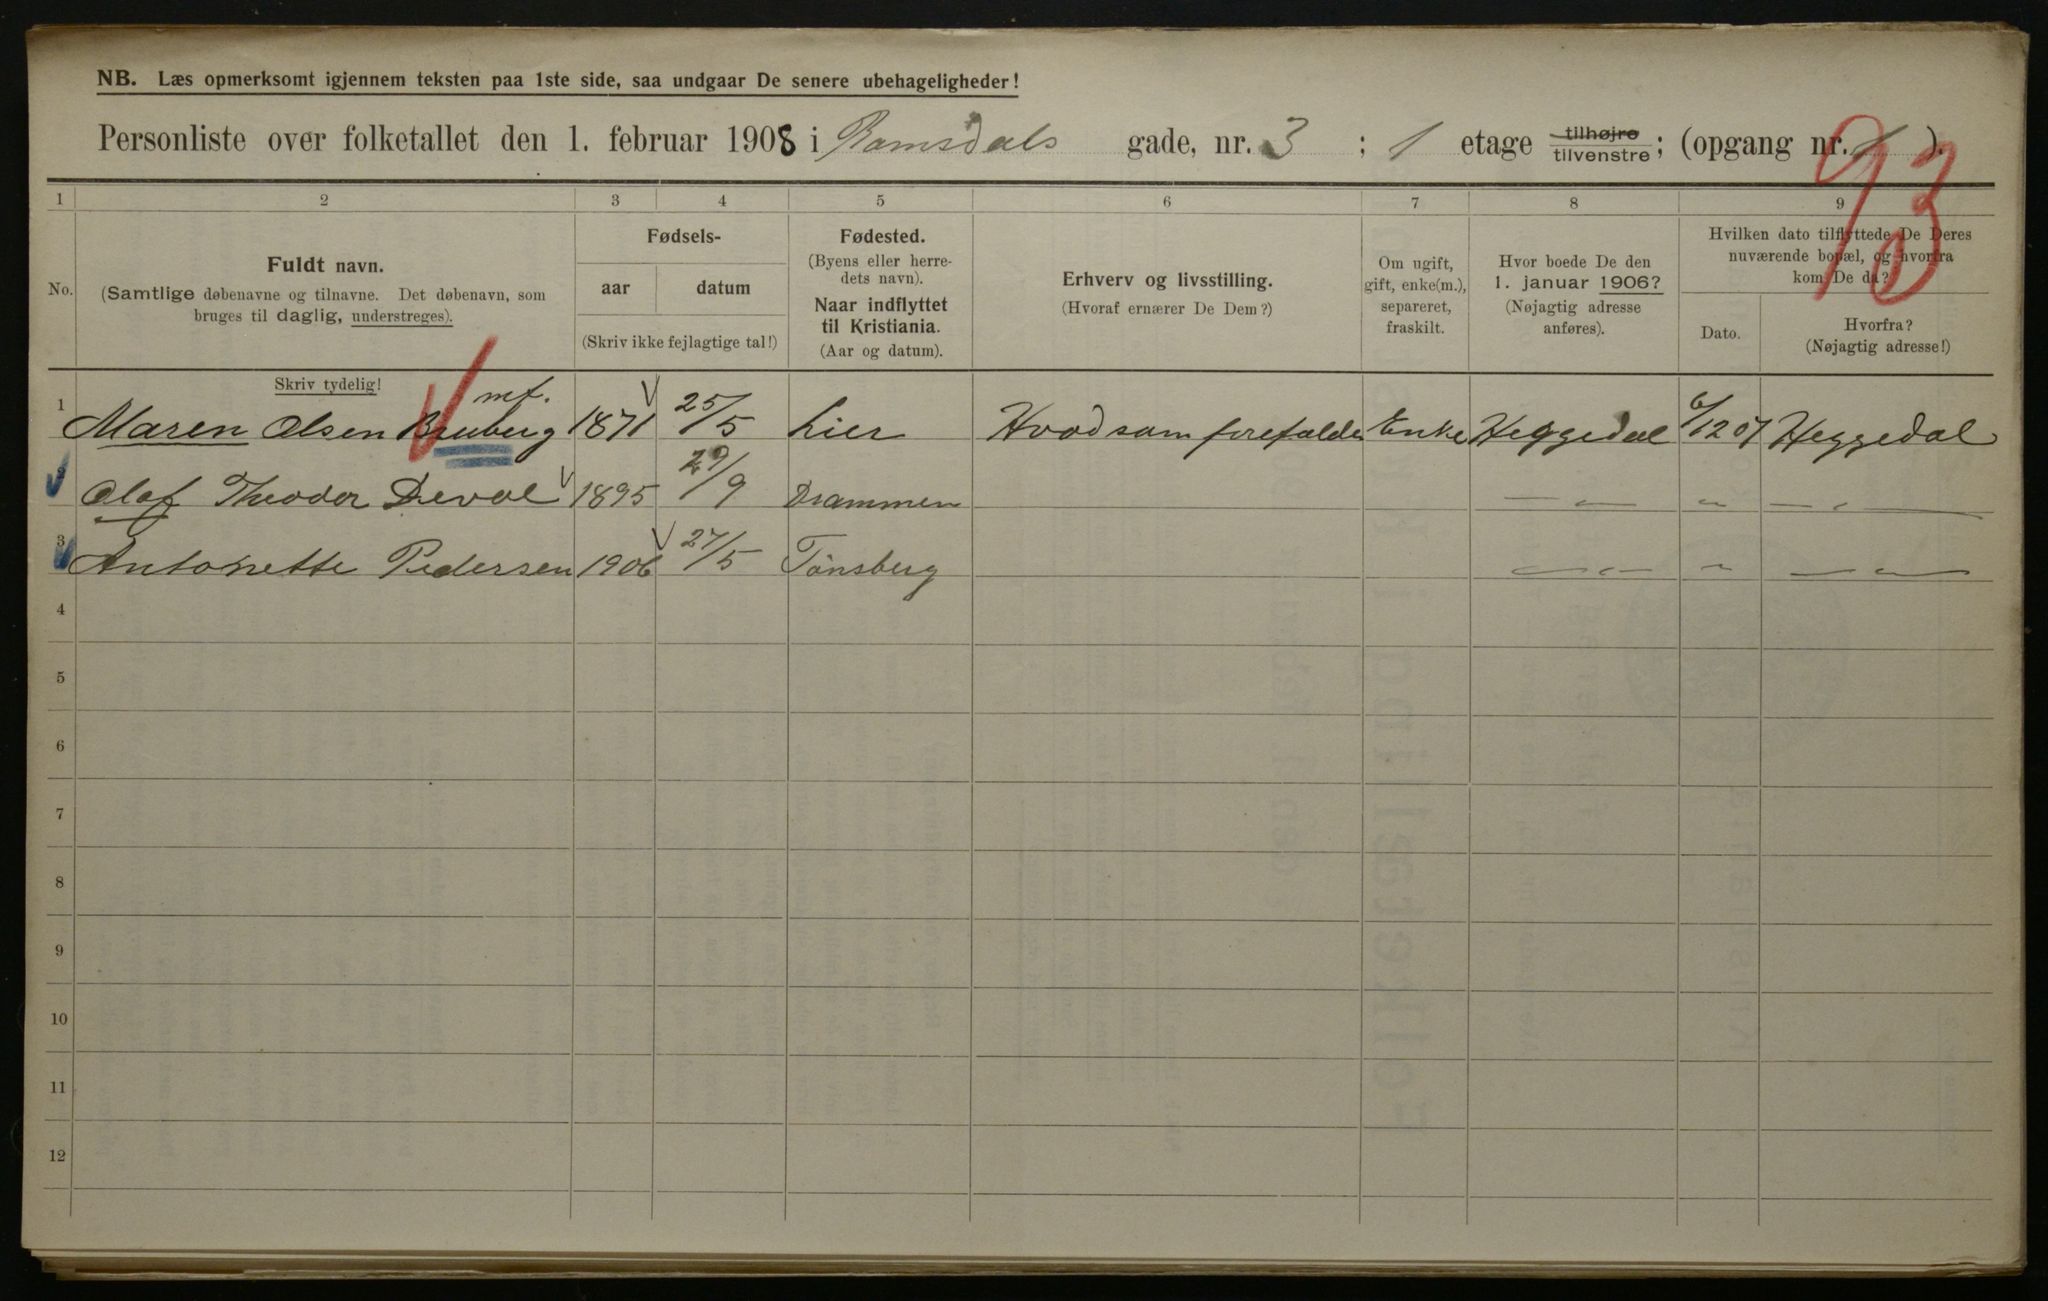 NB. Læs opmerksomt igjennem teksten paa 1ste side, saa undgaar De senere ubehageligheder!
Personliste over folketallet den 1. februar 1908 i Romsdals gade, nr. 3 ; 1 etage tilhøjre tilvenstre; (opgang nr. 1 ).
93
1 2 3 4 5 6 7 8 9
No.
Fuldt navn.
(Samtlige døbenavne og tilnavne. Det døbenavn, som
bruges til daglig, understreges).
Skriv tydelig!
Fødsels-
aar datum
(Skriv ikke fejlagtige tal!)
Fødested.
(Byens eller herre-
dets navn).
Naar indflyttet
til Kristiania.
(Aar og datum).
Erhverv og livsstilling.
(Hvoraf ernærer De Dem?)
Om ugift,
gift, enke(m.),
separeret,
fraskilt.
Hvor boede De den
1. januar 1906?
(Nøjagtig adresse
anføres).
Hvilken dato tilflyttede De Deres
nuværende bopæl, og hvorfra
kom De da?
Dato.
Hvorfra?
(Nøjagtig adresse!)
mf.
1 Maren Olsen Bruberg 1871 25/5 Lier Hvad som forefalder Enke Heggedal 6/12 07 Heggedal
2 Olaf Theodor Devol 1895 29/9 Drammen — „ — „ — „ —
3 Antonette Pedersen 1906 27/5 Tønsberg — „ — „ — „ —
4
5
6
7
8
9
10
11
12